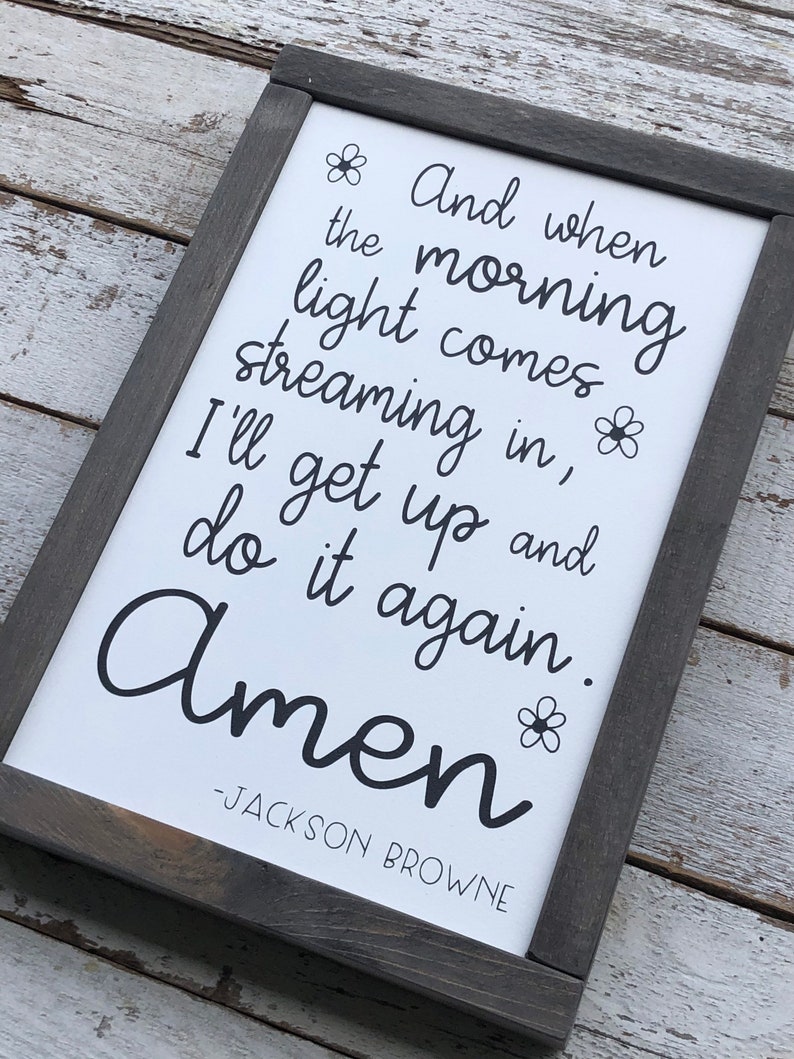 And when
the morning
light comes
streaming in,
I'll get up and
do it again.
Amen
-JACKSON BROWNE